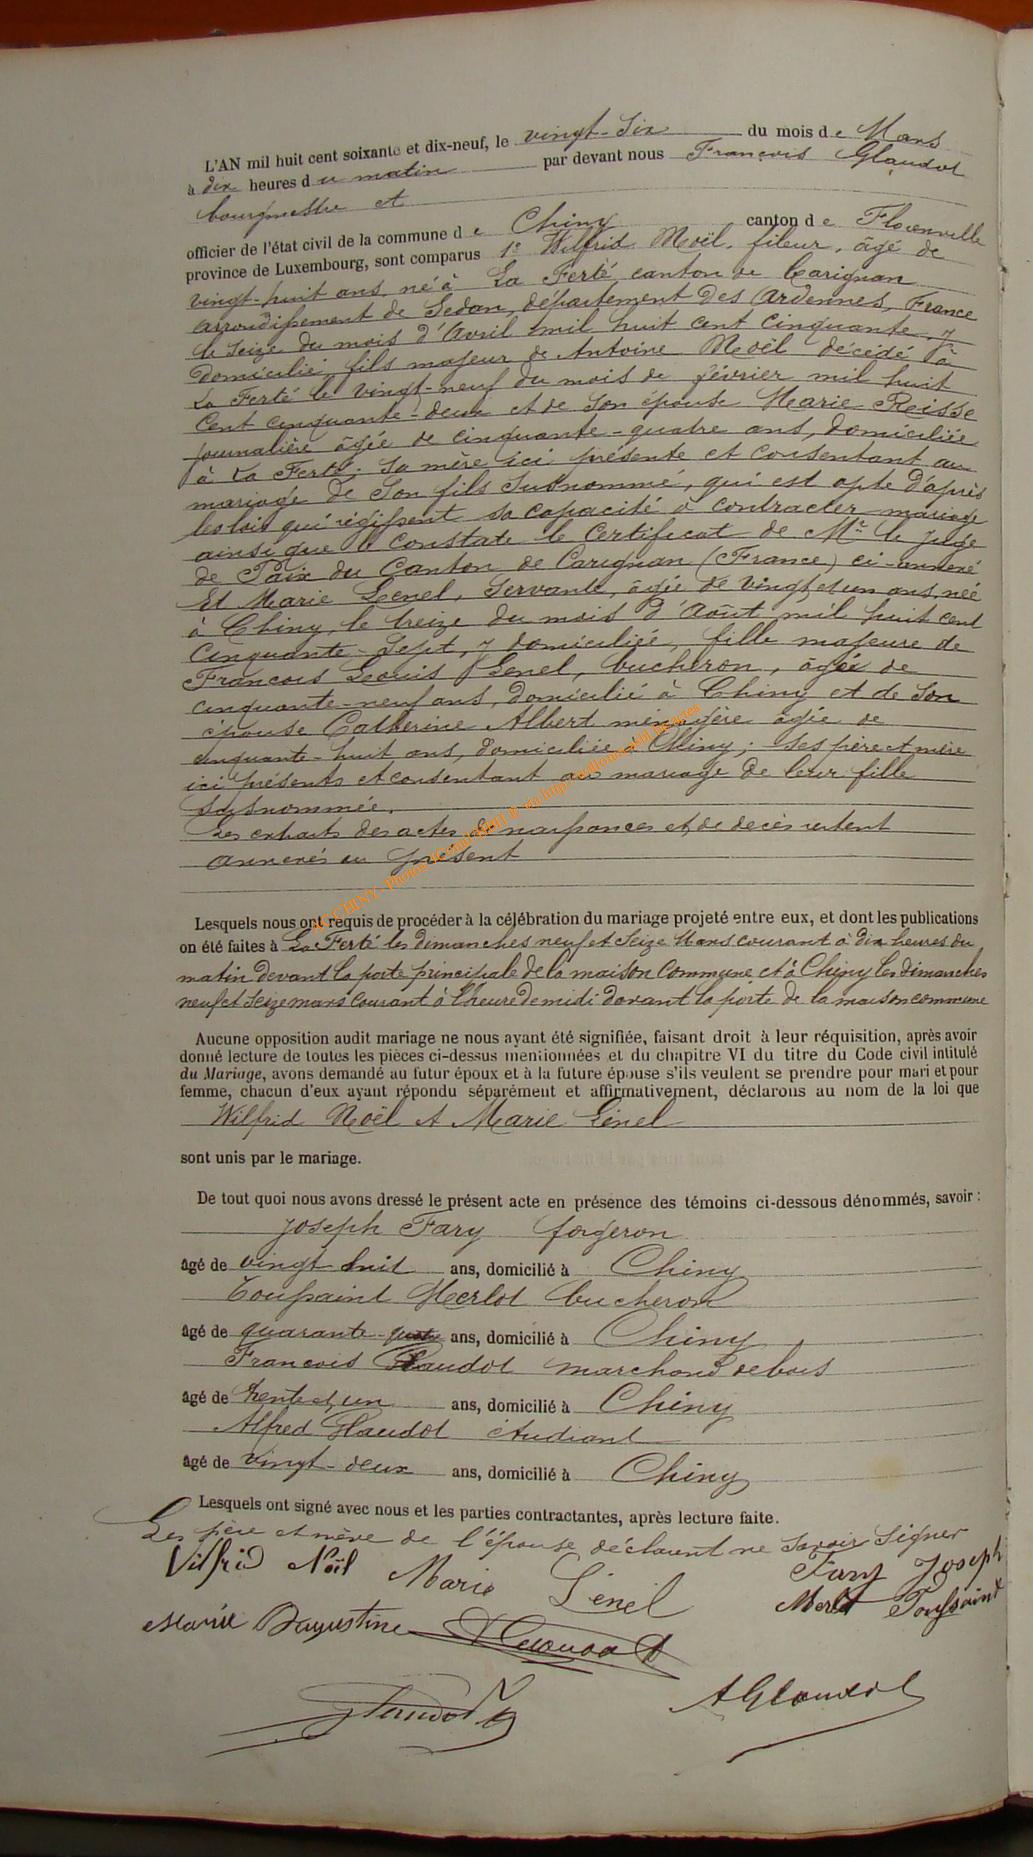 L'AN mil huit cent soixante et dix-neuf, le vingt-six du mois de Mars
à dix heures du matin par devant nous François Glaudot
bourgmestre et
officier de l'état civil de la commune de Chiny canton de Florenville
province de Luxembourg, sont comparus 1e Wilfrid Noël, fileur, âgé de
vingt-huit ans, né à La Ferté, canton de Carignan
arrondissement de Sedan, département des Ardennes, France
le seize du mois d'Avril mil huit cent cinquante, y
domicilié, fils majeur de Antoine Noël décédé à
La Ferté le vingt-neuf du mois de février mil huit
cent cinquante-deux et de son épouse Marie Reisse
journalière âgée de cinquante-quatre ans, domiciliée
à La Ferté. Sa mère ici présente et consentant au
mariage de Son fils Susnommé, qui est apte d'après
les lois qui régissent sa capacité à contracter mariage
ainsi que le constate le certificat de Mr le juge
de Paix du Canton de Carignan (France) ci-annexé
Et Marie Lenel, Servante, âgée de vingt et un ans, née
à Chiny, le treize du mois d'Août mil huit cent
cinquante-Sept, y domiciliée, fille majeure de
François Louis Lenel, bucheron, âgée de
cinquante-neuf ans, domicilié à Chiny et de Son
épouse Catherine Albert ménagère âgée de
cinquante-huit ans, domiciliée à Chiny; Ses père et mère
ici présents et consentant au mariage de leur fille
susnommée.
Les extraits des actes de naissances et de décès restent
annexés au présent
Lesquels nous ont requis de procéder à la célébration du mariage projeté entre eux, et dont les publications
on été faites à La Ferté les dimanches neuf et Seize Mars courant à dix heures du
matin devant la porte principale de la maison Commune et à Chiny les dimanches
neuf et Seize mars courant à l'heure de midi davant la porte de la maison commune
Aucune opposition audit mariage ne nous ayant été signifiée, faisant droit à leur réquisition, après avoir
donné lecture de toutes les pièces ci-dessus mentionnées et du chapitre VI du titre du Code civil intitulé
du Mariage, avons demandé au futur époux et à la future épouse s'ils veulent se prendre pour mari et pour
femme, chacun d'eux ayant répondu séparément et affirmativement, déclarons au nom de la loi que
Wilfrid Noël et Marie Lenel
sont unis par le mariage.
De tout quoi nous avons dressé le présent acte en présence des témoins ci-dessous dénommés, savoir :
Joseph Fary forgeron
âgé de vingt huit ans, domicilié à Chiny
Toussaint Merlot bucheron
âgé de quarante-quatre ans, domicilié à Chiny
François Glaudot marchand de bois
âgé de trente et un ans, domicilié à Chiny
Alfred Glaudot étudiant
âgé de vingt-deux ans, domicilié à Chiny
Lesquels ont signé avec nous et les parties contractantes, après lecture faite.
Les père et mère de l'épouse déclarent ne savoir Signer
Vilfrid Noël Marie Lénel Fary Joseph
Merlot Toussaint
Marie
Glaudot
AGlaudot